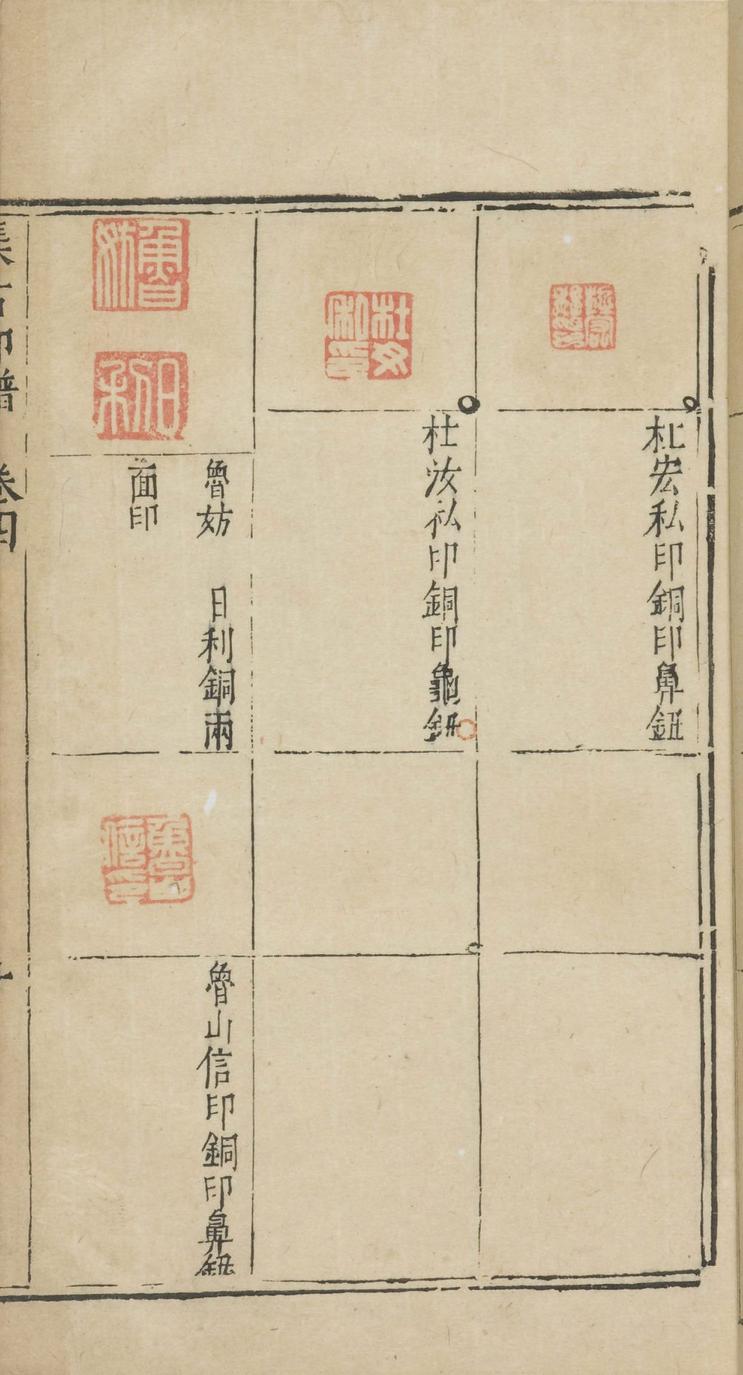 杜宏私印銅印鼻鈕
杜汝私印銅印龜鈕
魯妢　日利銅兩
面印
魯山信印銅印鼻鈕
集古印譜　卷四